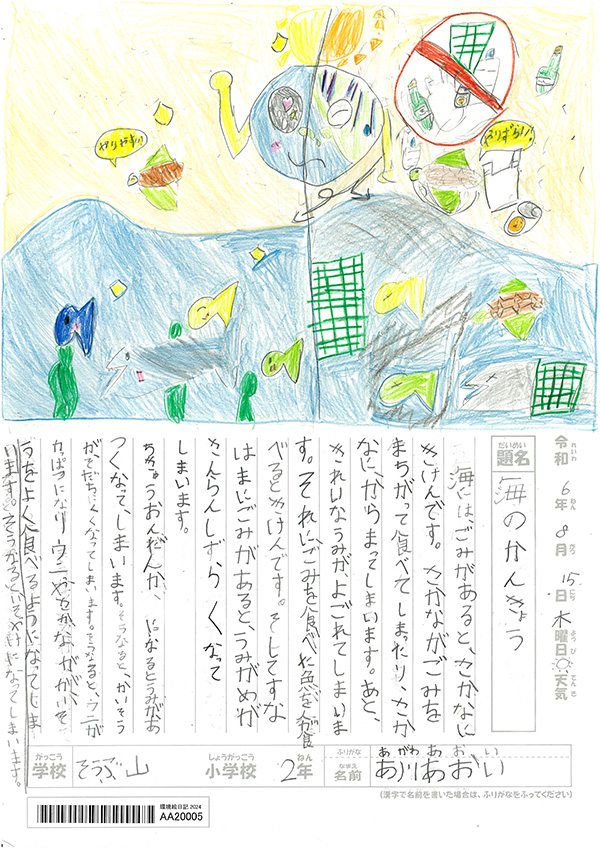 やりやすい!
やりずらい!
令和6年8月15日木曜日天気
れいわ ねん がつ にち ようび てんき
だいめい
題名 海のかんきょう
海にはごみがあると、さかなに
きけんです。さかながごみを
まちがって食べてしまったり、さか
なにからまってしまいます。あと、
きれいなうみが、よごれてしまいま
す。それにごみを食べた魚を人が食
べるときけんです。そしてすな
はまにごみがあると、うみがめが
さんらんしずらくなって
しまいます。
ちきゅうおんだんか、になるとうみがあ
つくなって、しまいます。そうなると、かいそう
がそだちにくくなってしまいます。そうなると、ウニが
かっぱつになり、ウニやさかながかいそ
うをよく食べるようになってしま
います。そうなるといそやけになってしまいます。
がっこう しょうがっこう ねん ふりがな あがわ あおい
学校 そうぶ山 小学校 2年 なまえ 名前 あ川あおい
(漢字で名前を書いた場合は、ふりがなをふってください)
環境絵日記 2024
AA20005